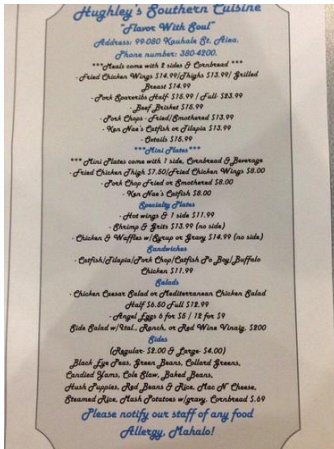 Hughley's Southern Cuisine
"Flavor With Soul"
Address: 99-080 Kauhale St. Aiea.
Phone number: 380-4200.
***Meals come with 2 sides & Cornbread ***
-Fried Chicken Wings $14.99/Thighs $13.99/ Grilled
Breast $14.99
-Pork Spareribs Half- $15.99 / Full- $23.99
- Beef Brisket $15.99
- Pork Chops - Fried/Smothered $13.99
- Ken Nae's Catfish or Tilapia $13.99
- Oxtails $15.99
***Mini Plates***
*** Mini Plates come with 1 side, Cornbread & Beverage
-Fried Chicken Thigh $7.50/Fried Chicken Wings $8.00
- Pork Chop Fried or Smothered $8.00
- Ken Nae's Catfish $8.00
Specialty Plates
- Hot wings & 1 side $11.99
- Shrimp & Grits $13.99 (no side)
- Chicken & Waffles w/Syrup or Gravy $14.99 (no side)
Sandwiches
- Catfish/Tilapia/Pork Chop/Catfish Po Boy/Buffalo
Chicken $11.99
Salads
- Chicken Caesar Salad or Mediterranean Chicken Salad
Half $6.50 Full $12.99
- Angel Eggs 6 for $5 / 12 for $9
Side Salad w/Ital., Ranch, or Red Wine Vinaig. $200
Sides
(Regular- $2.00 & Large- $4.00)
Black Eye Peas, Green Beans, Collard Greens,
Candied Yams, Cole Slaw, Baked Beans,
Hush Puppies, Red Beans & Rice, Mac N Cheese,
Steamed Rice, Mash Potatoes w/gravy. Cornbread $.69
Please notify our staff of any food
Allergy, Mahalo!